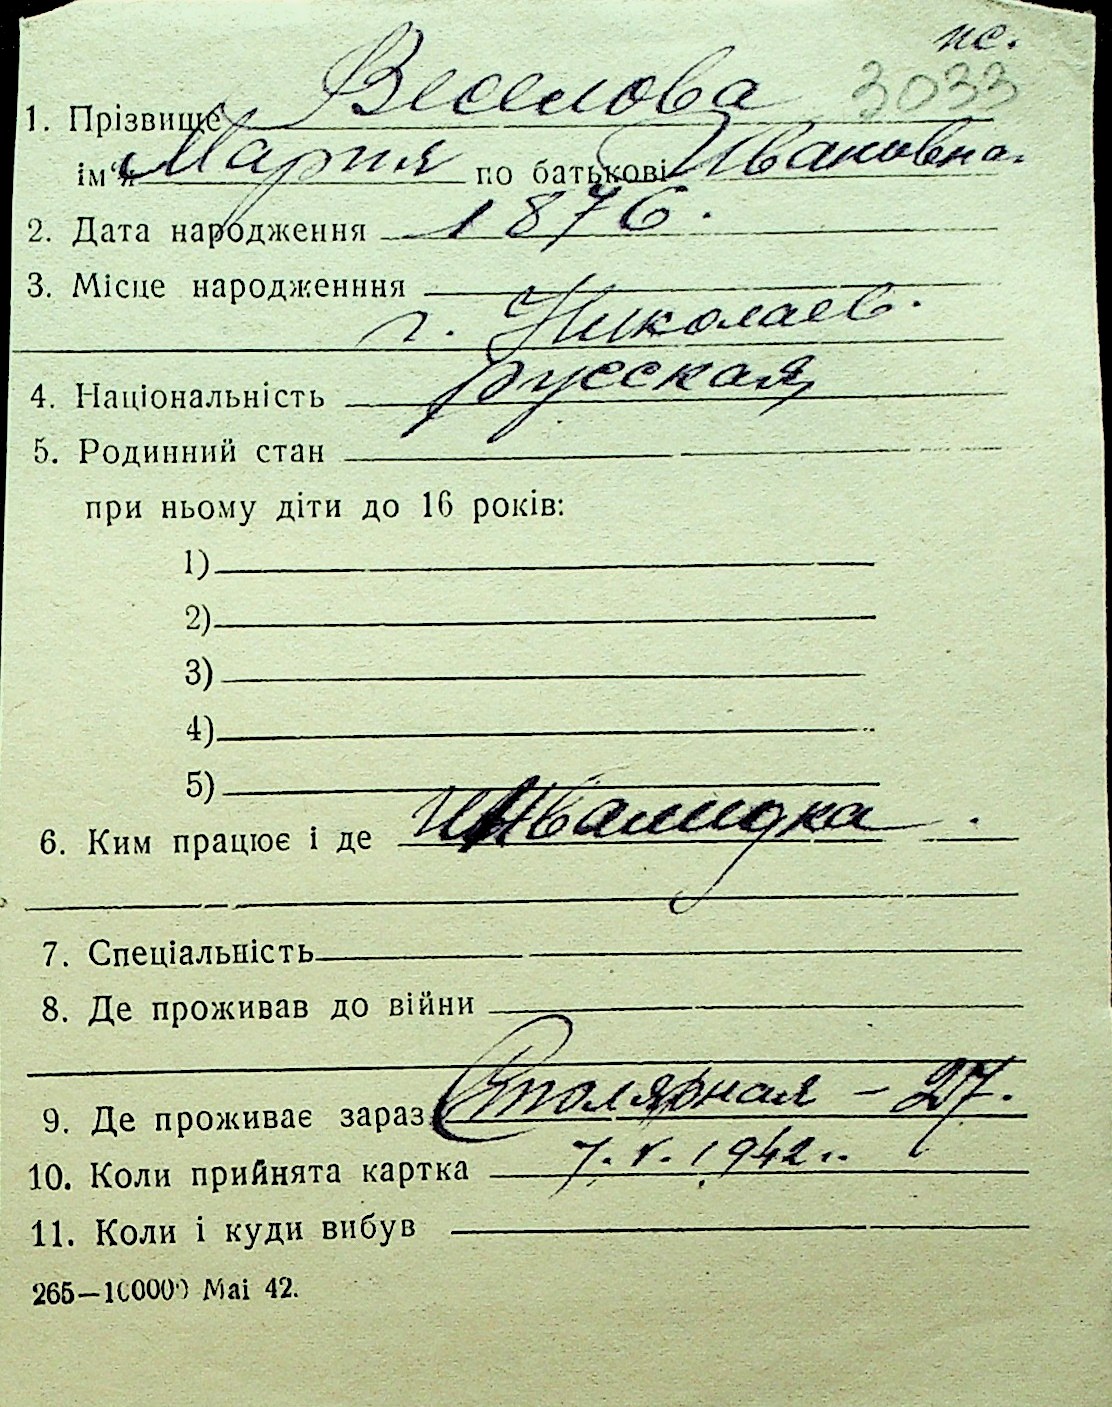 пс.
3033
1. Прізвище Веселова
ім'я Мария по батькові Ивановна.
2. Дата народження 1876.
3. Місце народженння
г. Николаев.
4. Національність русская
5. Родинний стан
при ньому діти до 16 років:
1)
2)
3)
4)
5)
6. Ким працює і де инвалидка.
7. Спеціальність
8. Де проживав до війни
9. Де проживає зараз Столярная – 27.
10. Коли прийнята картка 7.V.1942..
11. Коли і куди вибув
265—100000 Маі 42.